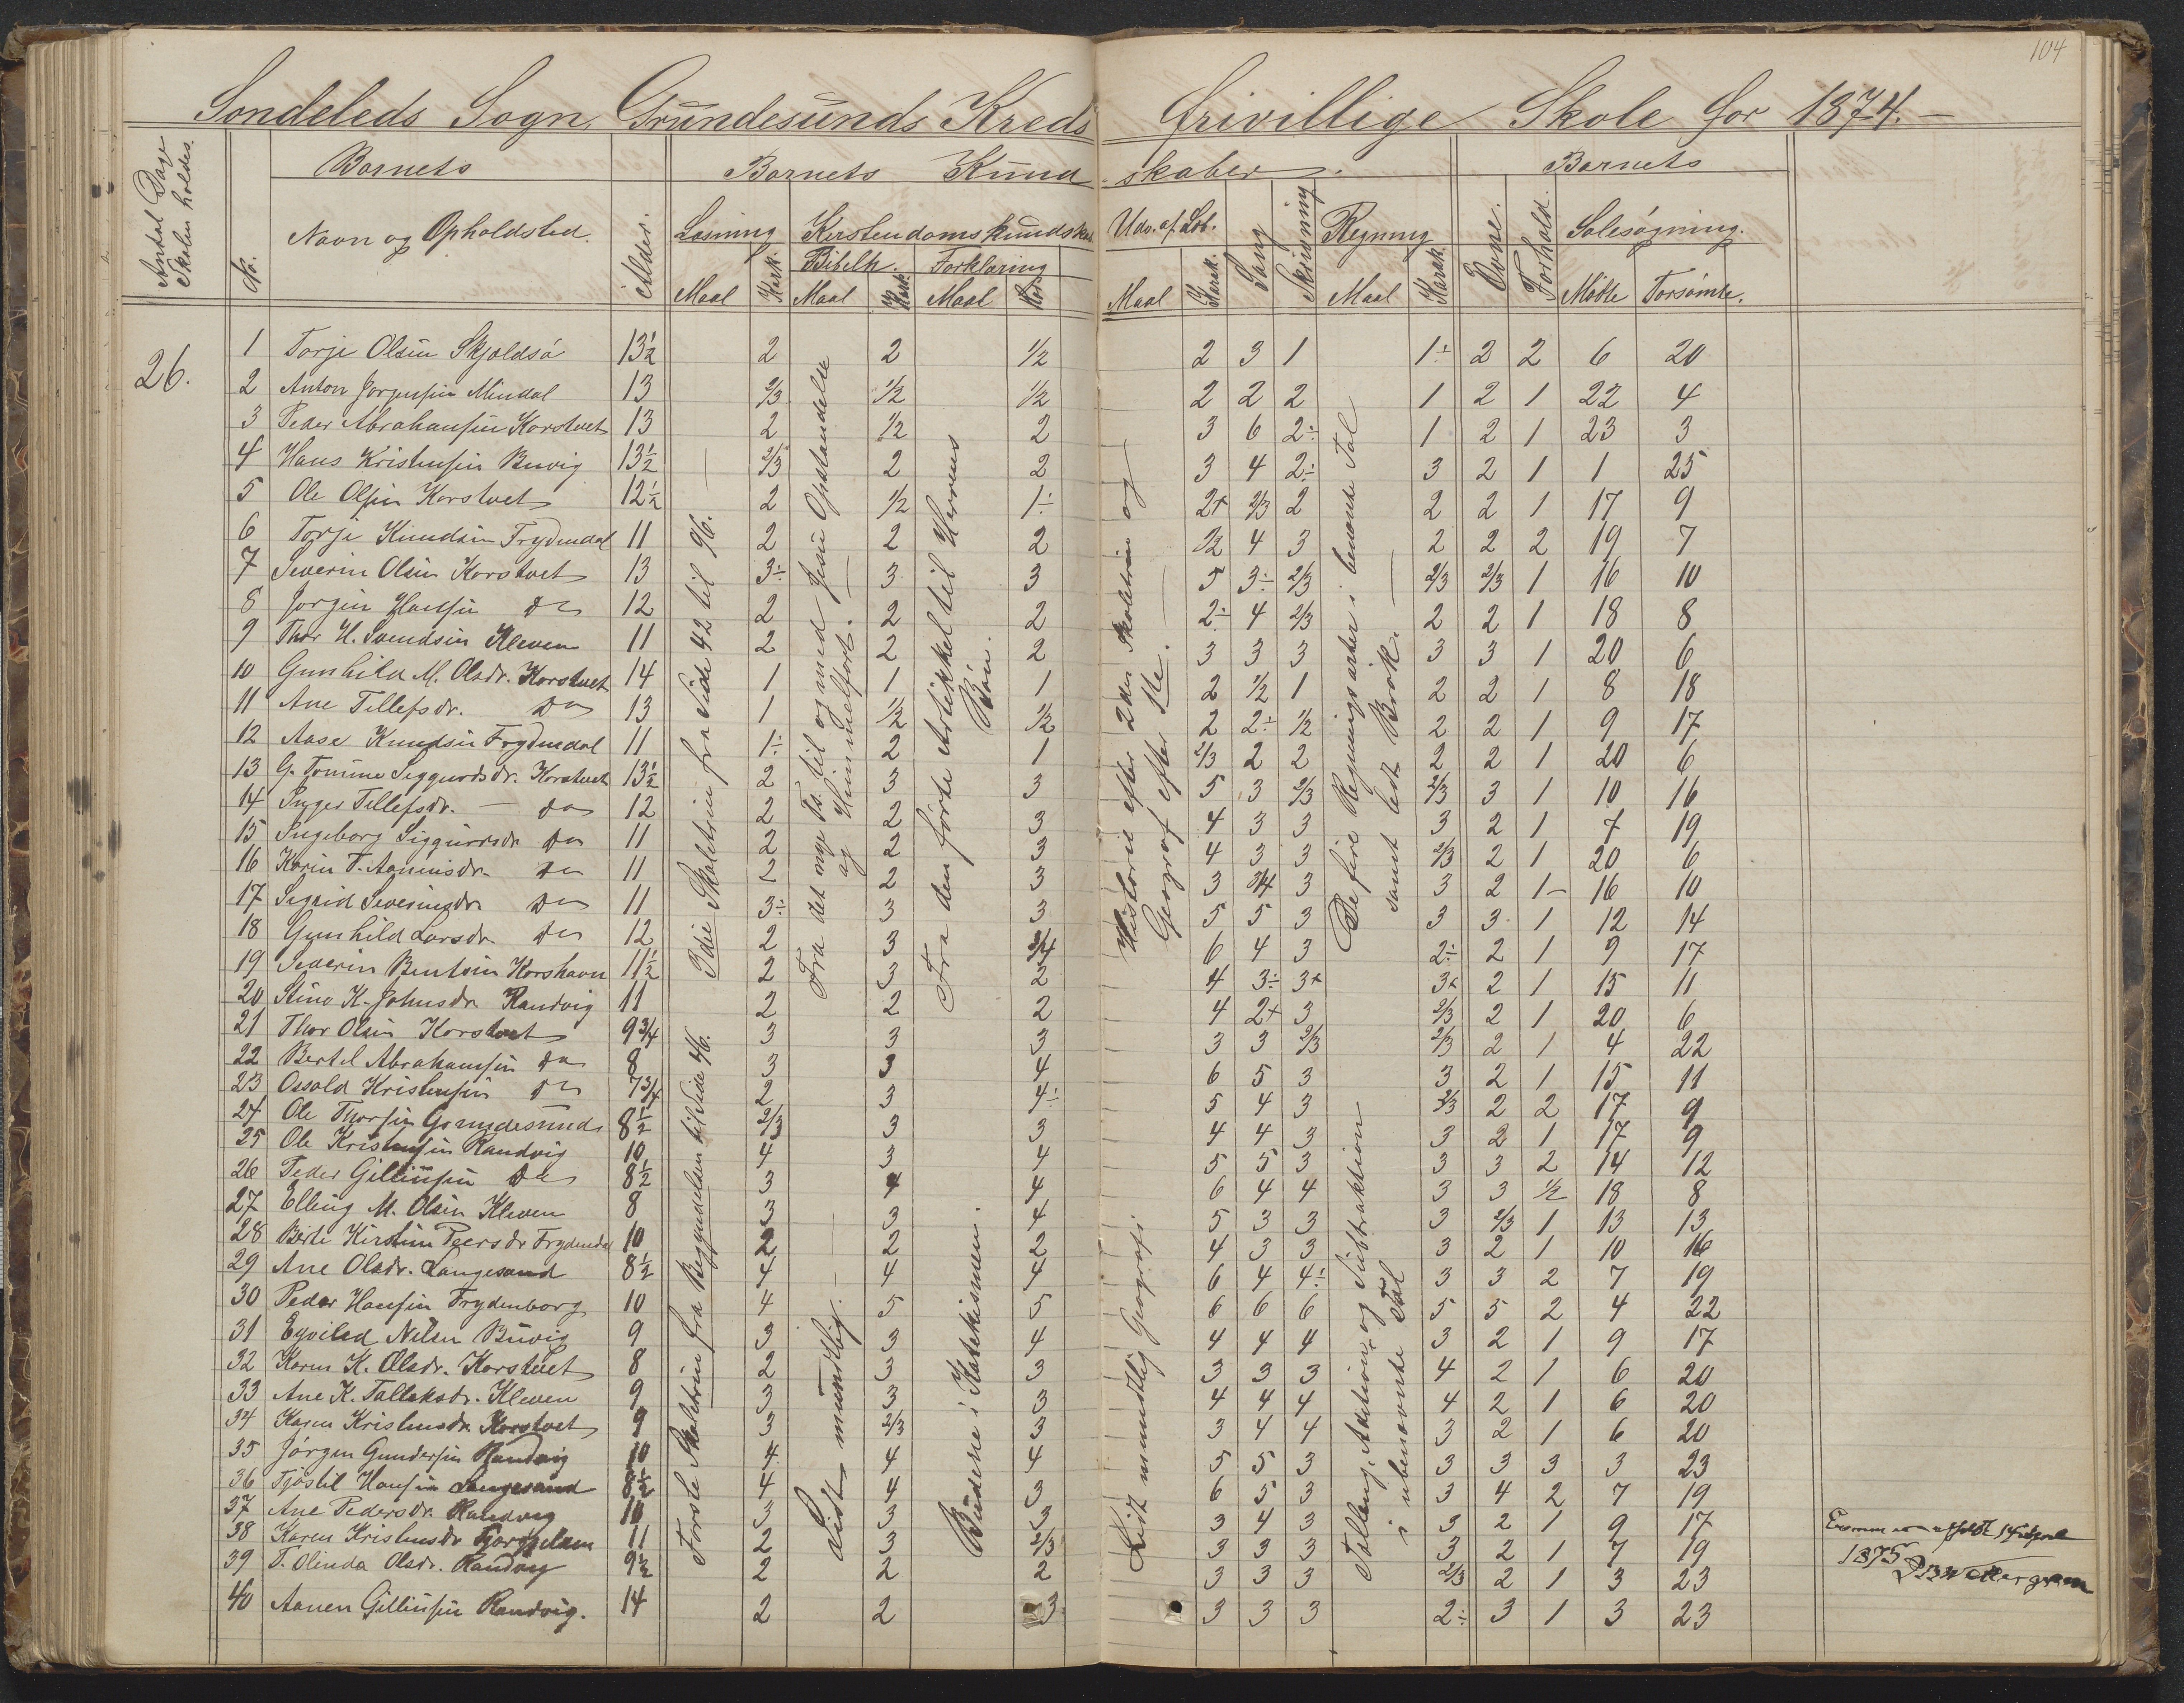 104
Søndeleds Sogn, Grundesunds Kreds frivillige Skole for 1874.
Antal Dage Skolen holdes.
No.
Barnets
Navn og Opholdsted.
Alder.
Barnets Kundskaber.
Læsning
Maal
Kark.
Kirstendomskundskab
Bibelh.
Maal
Kark.
Forklaring
Maal
Kar.
Udv. af Læb.
Maal
Karak.
Sang
Skrivning
Regning
Maal
Karak.
Barnets
Evne.
Forhold.
Solesøgning.
Mødte
Forsømte.
26.
1 Torje Olsen Skjoldsø 13½ 2 2 1/2 2 3 1 1÷ 2 2 6 20
2 Anton Jørgensen Mindal 13 2/3 1/2 1/2 2 2 2 1 2 1 22 4
3 Peder Abrahamsen Korstvet 13 2 1/2 2 3 6 2÷ 1 2 1 23 3
4 Hans Kristensen Buvig 13½ 2/3 2 2 3 4 2÷ 3 2 1 1 25
5 Ole Olsen Korstvet 12½ 2 1/2 1÷ 2+ 2/3 2 2 2 1 17 9
6 Torje Knudsen Frydendal 11 2 2 2 1/2 4 3 2 2 2 19 7
7 Severin Olsen Korstvet 13 3÷ 3 3 5 3÷ 2/3 2/3 2/3 1 16 10
8 Jørgen Hansen Do 12 2 2 2 2÷ 4 2/3 2 2 1 18 8
9 Thor H. Svendsen Kleven 11 2 2 2 3 3 3 3 3 1 20 6
10 Gunhild M. Olsdr. Korstvet 14 1 1 1 2 1/2 1 2 2 1 8 18
11 Ane Tellefsdr. Do 13 1 1/2 1/2 2 2÷ 1/2 2 2 1 9 17
12 Aase Knudsen Frydendal 11 1÷ 2 1 2/3 2 2 2 2 1 20 6
13 G. Tomine Siggurdsdr. Korstvet 13½ 2 3 3 5 3 2/3 2/3 3 1 10 16
14 Inger Tellefsdr. — do 12 2 2 3 4 3 3 3 2 1 7 19
15 Ingeborg Siggurdsdr Do 11 2 2 3 4 3 3 2/3 2 1 20 6
16 Karen T. Aanensdr. Do 11 2 2 3 3 3/4 3 3 2 1- 16 10
17 Sigrid Severinsdr Do 11 3÷ 3 3 5 5 3 3 3 1 12 14
18 Gunhild Larsdr. Do 12 2 3 3/4 6 4 3 2÷ 2 1 9 17
19 Severin Bentsen Korshavn 11½ 2 3 2 4 3÷ 3+ 3+ 2 1 15 11
20 Stine K. Johnsdr. Randvig 11 2 2 2 4 2+ 3 2/3 2 1 20 6
21 Thor Olsen Korstvet 9¾ 3 3 3 3 3 2/3 2/3 2 1 4 22
22 Bertel Abrahamsen Do 8 3 3 4 6 5 3 3 2 1 15 11
23 Osvald Kristensen Do 7¾ 2 3 4÷ 5 4 3 2/3 2 2 17 9
24 Ole Thorsen Grundesund 8½ 2/3 3 3 4 4 3 3 2 1 17 9
25 Ole Kristensen Randvig 10 4 3 4 5 5 3 3 3 2 14 12
26 Peder Gillinsen Do 8½ 3 4 4 6 4 4 3 3 1/2 18 8
27 Elling M. Olsen Kleven 8 3 3 4 5 3 3 3 2/3 1 13 13
28 Berte Kirstine Peersdr Frydendal 10 2 2 2 4 3 3 3 2 1 10 16
29 Ane Olsdr. Langesand 8½ 4 4 4 6 4 4÷ 3 3 2 7 19
30 Peder Hansen Frydenborg 10 4 5 5 6 6 6 5 5 2 4 22
31 Nilsen Buvig 9 3 3 4 4 4 4 3 2 1 9 17
32 Karen K. Olsdr. Korstvet 8 2 3 3 3 3 3 4 2 1 6 20
33 Ane K. Talleksdr. Kleven 9 3 3 3 4 4 4 4 2 1 6 20
34 Karen Kristensdr. Korstvet 9 3 2/3 3 3 4 4 3 2 1 6 20
35 Jørgen Gundersen Randvig 10 4 4 4 5 5 3 3 3 3 3 23
36 Hansen Langesand 8½ 4 4 3 6 5 3 3 4 2 7 19
37 Ane Pedersdr. Randvig 10 3 3 3 3 4 3 3 2 1 9 17
38 Karen Kristensdr 11 2 3 2/3 3 3 3 3 2 1 7 19
39 T. Olenda Olsdr. Randvig 9½ 2 2 2 3 3 3 2/3 2 1 3 23
40 Aanen Gillinsen Randvig. 14 2 2 3 3 3 3 2÷ 3 1 3 23
3die Skoletrin fra Side 42 til 96.
Første Skoletrin fra Begyndelsen til Side 46.
Fra det nye Ts. til og med Jesu Opstandelse
og Himmelfart.
Lidt mundtlig.
Fra den første Artikkel til Herrens
Bøn.
Buderne i Katekismen.
Historie efter 2den Skoletrin og
Geograf efter Ste.
Lidt mundtlig Geografi
De fire Regningsarter i benævnte Tal
samt lidt Brøk.
Tælling, Adition og Subtraktion
i ubenævnte Tal
1875